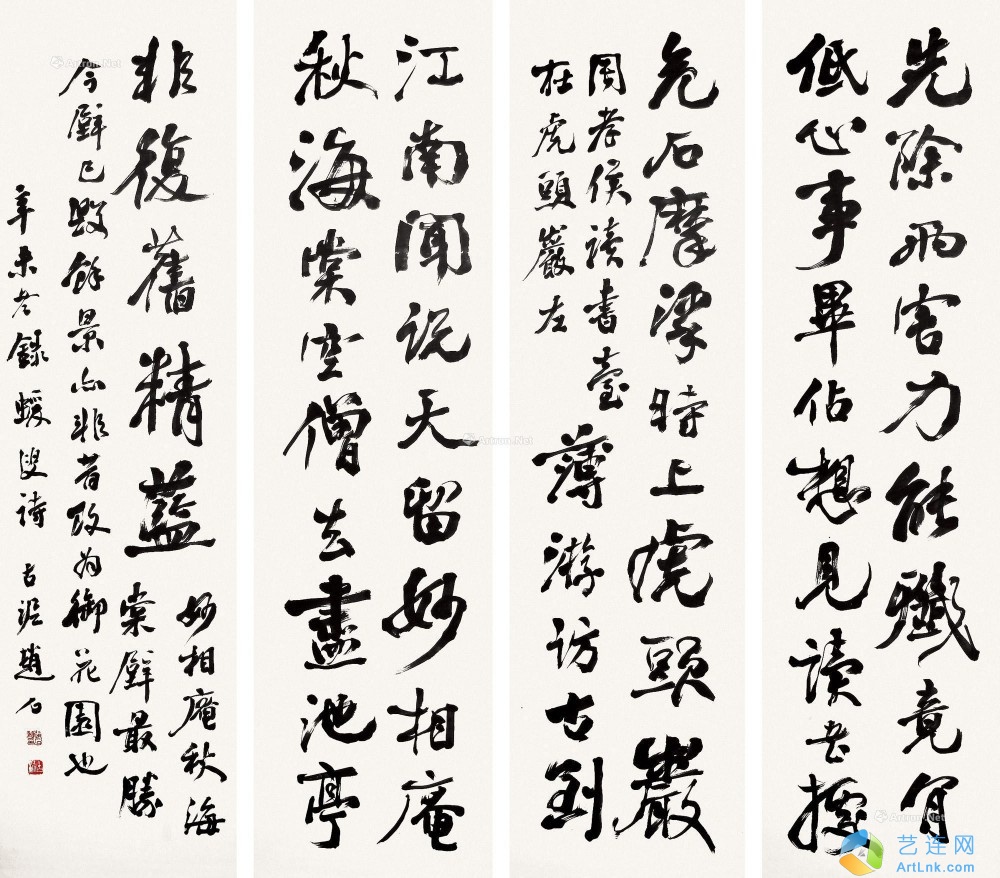 先除兩害力能殲竟肯
低心事畢佔想見讀書據
危石摩挲時上虎頭巖
周孝侯讀書臺
在虎頭巖左
薄游訪古到
江南聞説天留妙相庵
秋海棠空僧去盡池亭
非復舊精藍
妙相庵秋海
棠壁最勝
今壁已毀餘景亦非昔改為御花園也
辛未冬錄蝯叟詩 古泥趙石
Artron.Net
Artron.Net
Artron.Net
艺连网
ArtLnk.com